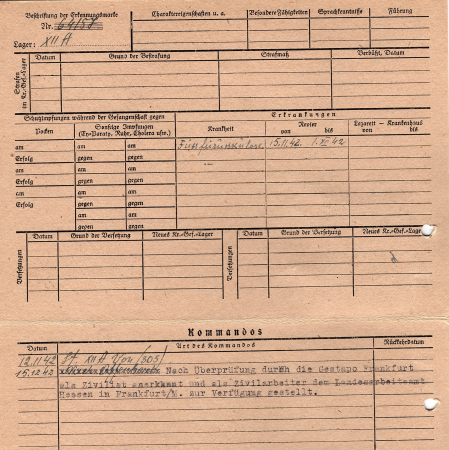 Beschriftung der Erkennungsmarke
Nr. 64157
Lager: XII A
Charaktereigenschaften u. a.
Besondere Fähigkeiten
Sprachkenntnisse
Führung
Strafen in Kr.-Gef.-Lager
Datum
Grund der Bestrafung
Strafmaß
Verbüßt, Datum
Schutzimpfungen während der Gefangenschaft gegen
Erkrankungen
Pocken
Sonstige Impfungen
(Ty-Paraty, Ruhr, Cholera usw.)
Krankheit
Revier
von bis
Lazarett – Krankenhaus
von bis
am am am
Erfolg gegen gegen
am am am
Erfolg gegen gegen
am am am
Erfolg gegen gegen
am am
gegen gegen
am am
gegen gegen
15.11.42 1.XII 42
Versetzungen
Datum
Grund der Versetzung
Neues Kr.-Gef.-Lager
Versetzungen
Datum
Grund der Versetzung
Neues Kr.-Gef.-Lager
Kommandos
Datum
Art des Kommandos
Rückkehrdatum
12.11.42 St. XII A (305)
15.12.42 Nach Überprüfung durch die Gestapo Frankfurt
als Zivilist anerkannt und als Zivilarbeiter dem Landesarbeitsamt
Hessen in Frankfurt/M. zur Verfügung gestellt.